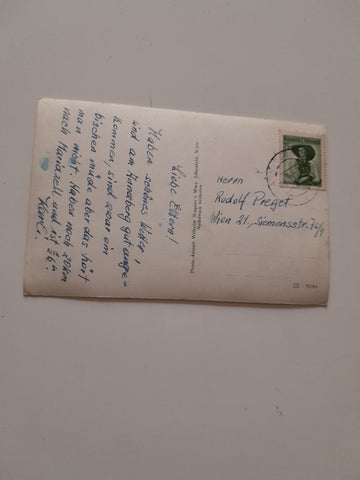 Liebe Eltern!
Haben schönes Wetter,
sind am Annaberg gut ange-
kommen, sind zwar ein
bischen müde aber das hört
man nicht. Haben noch 20 km
nach Mariazell und ist
Karl.
Photo-Anstalt Wilhelm Wagner's Wwe Lilienfeld, N.Oe.
Nachdruck verboten
Herrn
Rudolf Preget
Wien 21., Siemensstr. 70/4